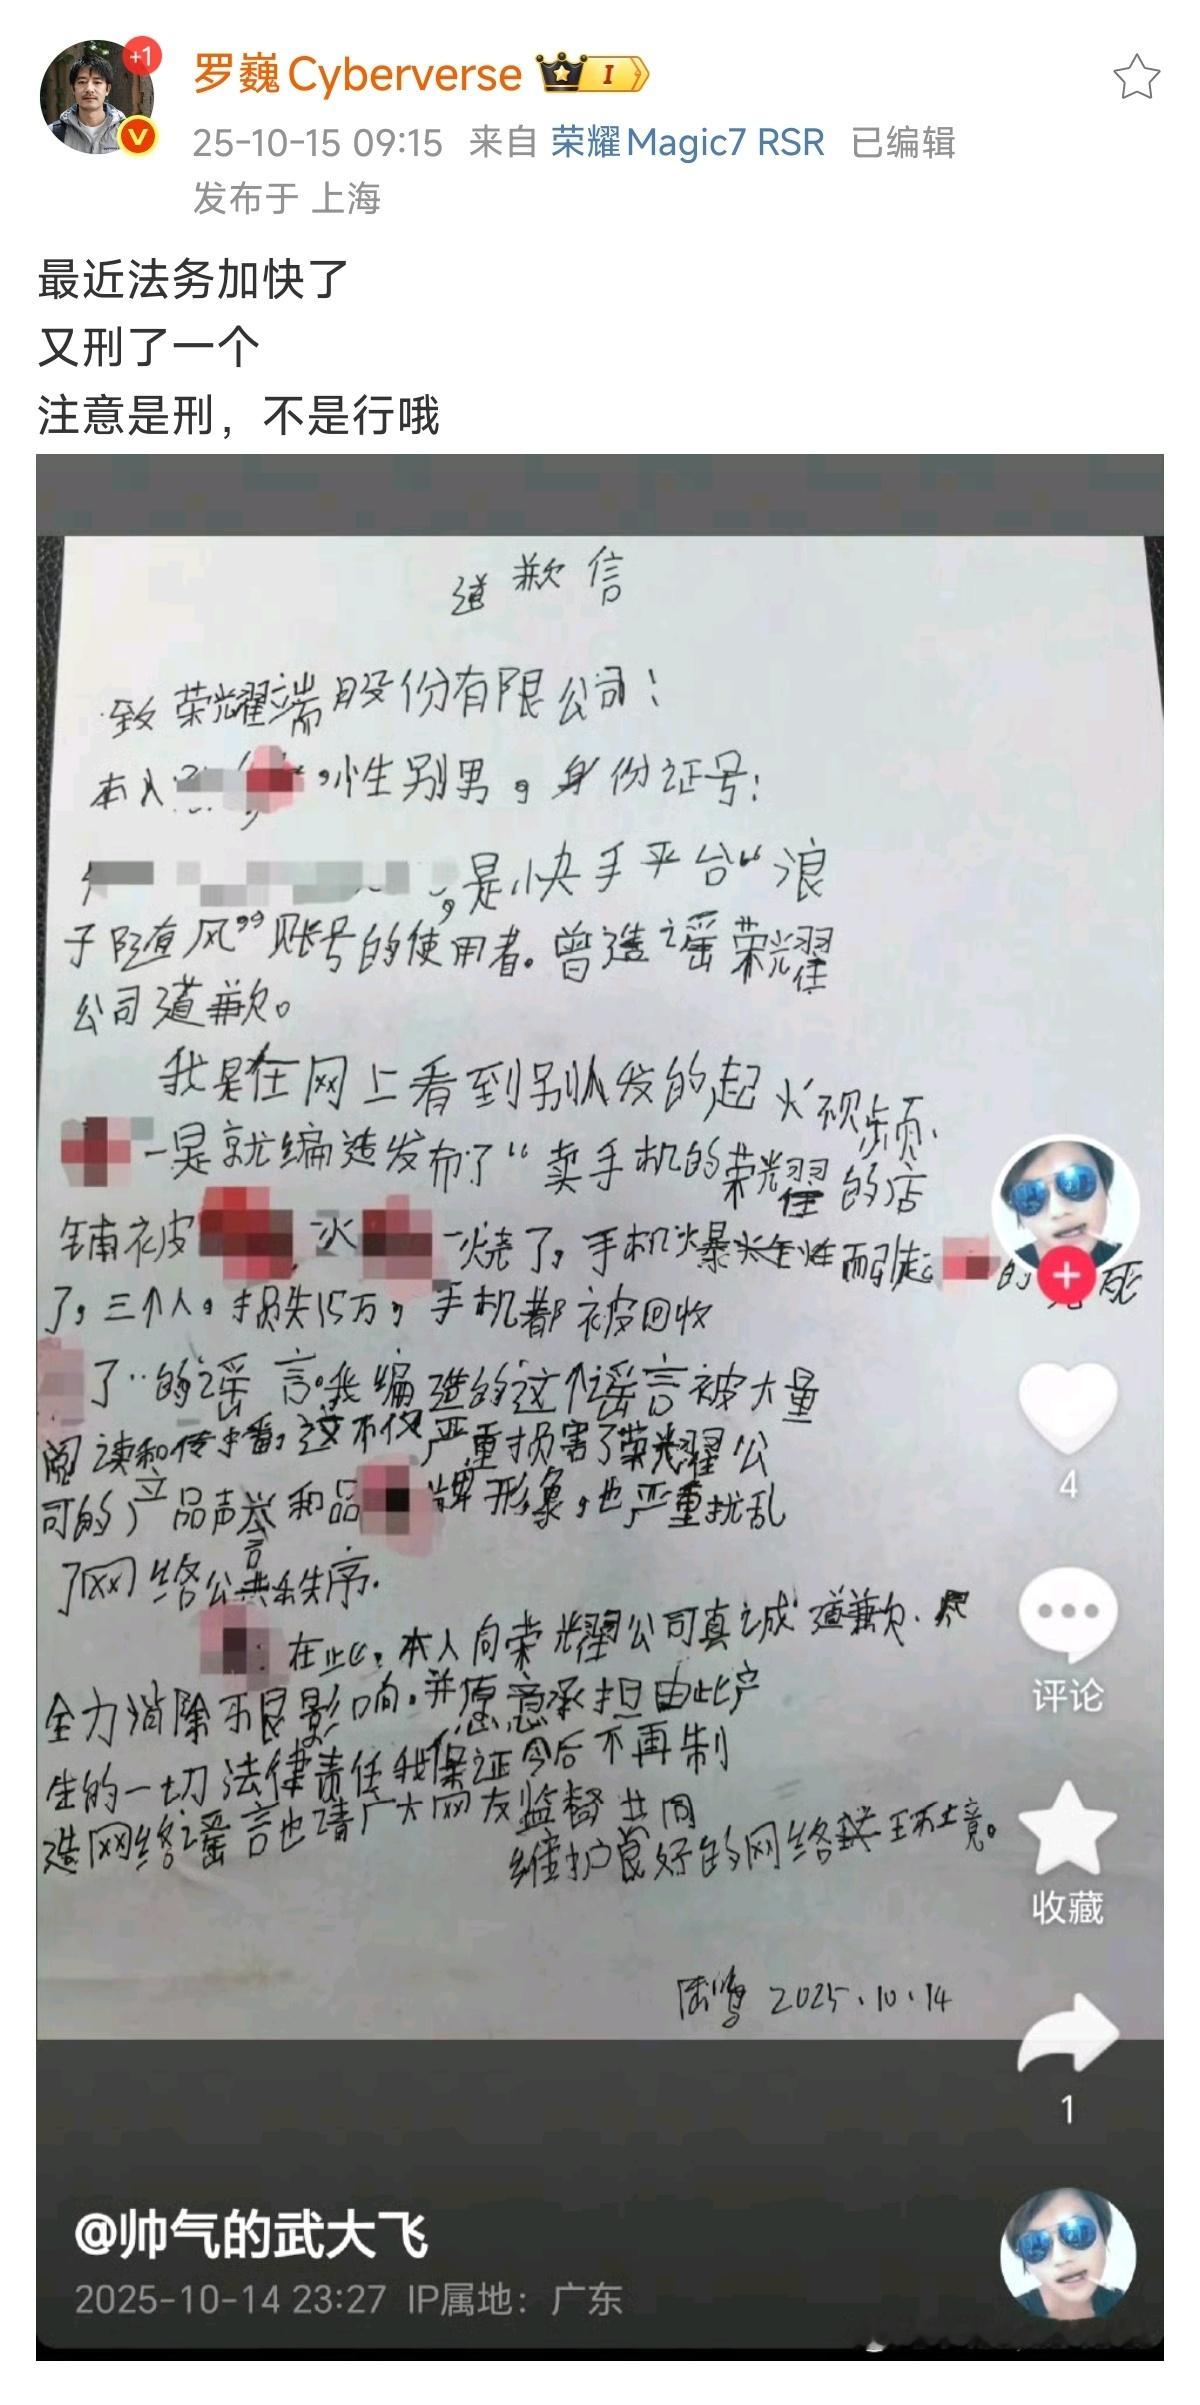 +1
罗巍Cyberverse
I
25-10-15 09:15 来自 荣耀Magic7 RSR 已编辑
发布于 上海
最近法务加快了
又刑了一个
注意是刑，不是行哦
道歉信
致荣耀端股份有限公司！
本人 ，性别男，身份证号：
，是快手平台“浪
子随风”账号的使用者。曾造谣荣耀
公司道歉。
我是在网上看到别人发的起火视频、
一是就编造发布了“卖手机的荣耀的店
铺被 火 一烧了，手机爆 而引起 的 死
了，三个人，损失15万，手机都被回收
了”的谣言。我编造的这个谣言被大量
阅读和传播，这不仅严重损害了荣耀公
司的产品声誉和品牌形象，也严重扰乱
了网络公共秩序.
在此，本人向荣耀公司真诚道歉、
全力消除不良影响，并愿意承担由此产
生的一切法律责任我保证今后不再制
造网络谣言也请广大网友监督共同
维护良好的网络 环境。
陆鸣 2025.10.14
4
评论
收藏
1
@帅气的武大飞
2025-10-14 23:27 IP属地：广东